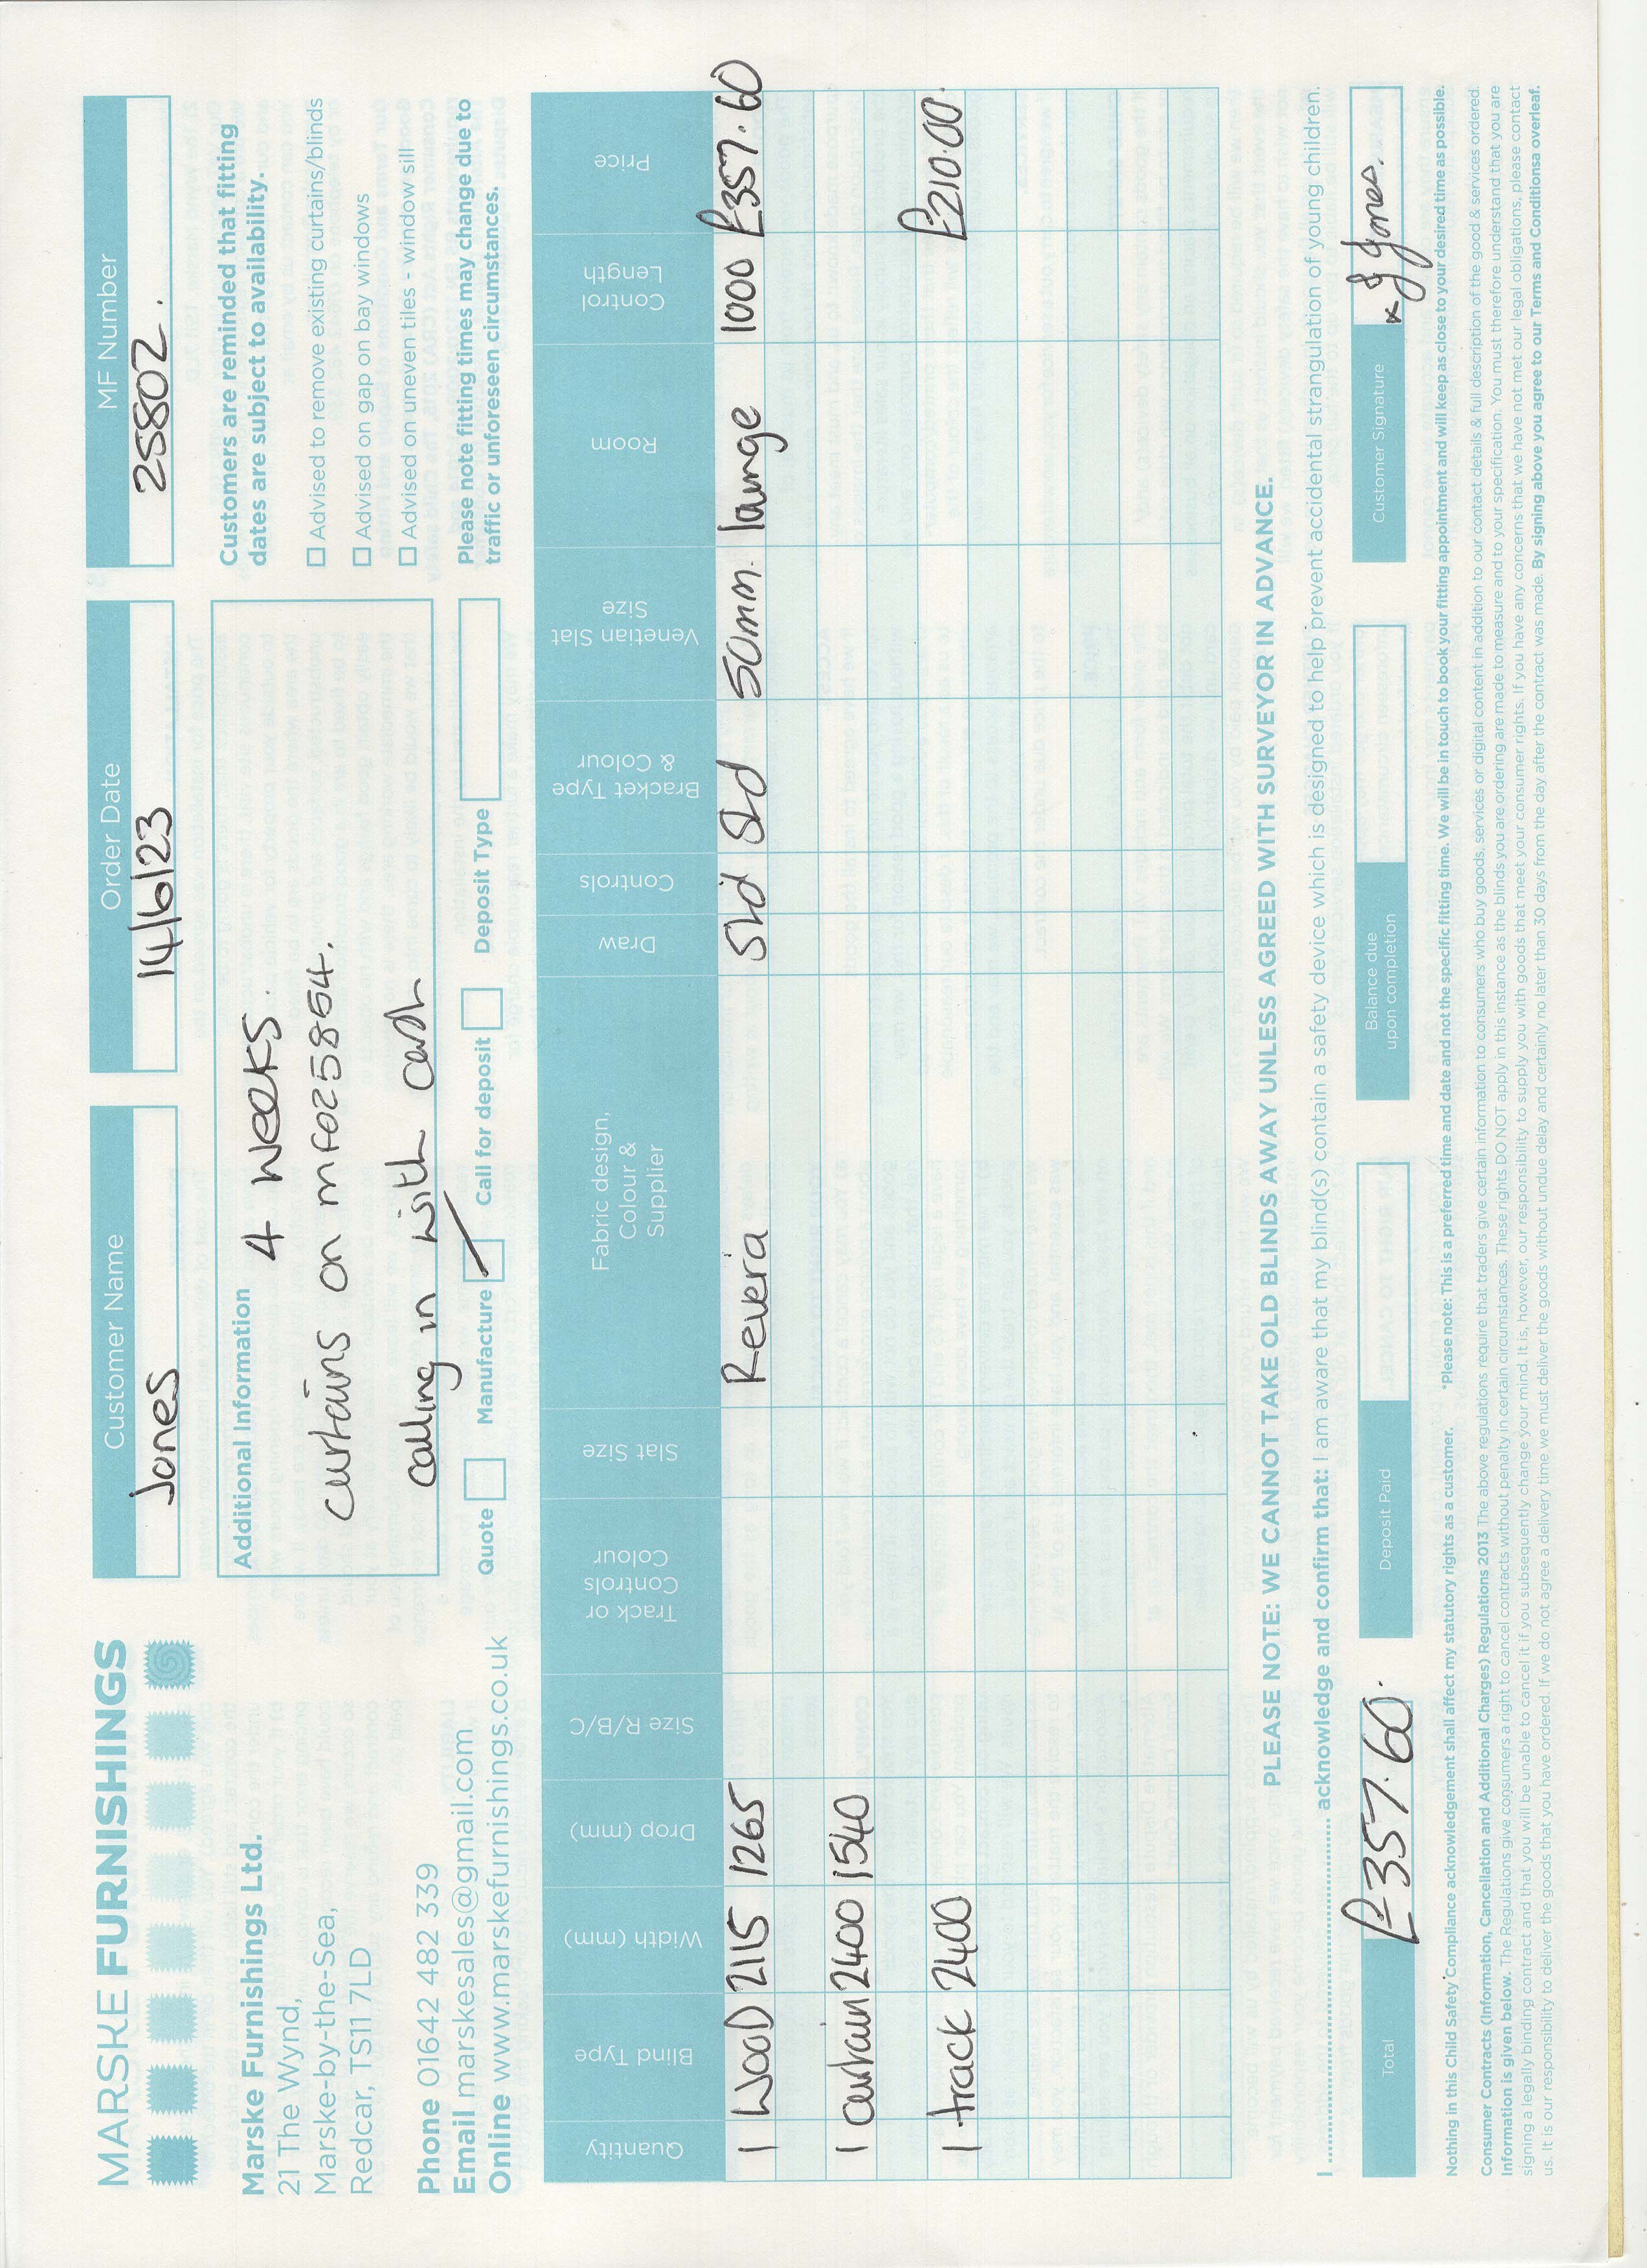 MARSKE FURNISHINGS
Marske Furnishings Ltd.
21 The Wynd,
Marske-by-the-Sea,
Redcar, TS11 7LD
Phone 01642 482 339
Email marskesales@gmail.com
Online www.marskefurnishings.co.uk
Customer Name
Jones
Order Date
14/6/23
MF Number
25802.
Additional Information
4 weeks.
curtains on mf025854.
calling in with cash
Quote
Manufacture
Call for deposit
Deposit Type
Customers are reminded that fitting
dates are subject to availability.
Advised to remove existing curtains/blinds
Advised on gap on bay windows
Advised on uneven tiles - window sill
Please note fitting times may change due to
traffic or unforeseen circumstances.
Quantity
Blind Type
Width (mm)
Drop (mm)
Size R/B/C
Track or
Controls
Colour
Slat Size
Fabric design,
Colour &
Supplier
Draw
Controls
Bracket Type
& Colour
Venetian Slat
Size
Room
Control
Length
Price
1 WOOD 2115 1265 Reveria Std Std 50mm. lounge 1000 £357.60
1 curtain 2400 1540
1 track 2400 £210.00.
PLEASE NOTE: WE CANNOT TAKE OLD BLINDS AWAY UNLESS AGREED WITH SURVEYOR IN ADVANCE.
I .................................... acknowledge and confirm that: I am aware that my blind(s) contain a safety device which is designed to help prevent accidental strangulation of young children.
Total
£357.60.
Deposit Paid
Balance due
upon completion
Customer Signature
x J Jones.
Nothing in this Child Safety Compliance acknowledgement shall affect my statutory rights as a customer. *Please note: This is a preferred time and date and not the specific fitting time. We will be in touch to book your fitting appointment and will keep as close to your desired time as possible.
Consumer Contracts (Information, Cancellation and Additional Charges) Regulations 2013 The above regulations require that traders give certain information to consumers who buy goods, services or digital content in addition to our contact details & full description of the good & services ordered.
Information is given below. The Regulations give consumers a right to cancel contracts without penalty in certain circumstances. These rights DO NOT apply in this instance as the blinds you are ordering are made to measure and to your specification. You must therefore understand that you are
signing a legally binding contract and that you will be unable to cancel if you subsequently change your mind. It is, however, our responsibility to supply you with goods that meet your consumer rights. If you have any concerns that we have not met our legal obligations, please contact
us. It is our responsibility to deliver the goods that you have ordered. If we do not agree a delivery time we must deliver the goods without undue delay and certainly no later than 30 days from the day after the contract was made. By signing above you agree to our Terms and Conditionsa overleaf.